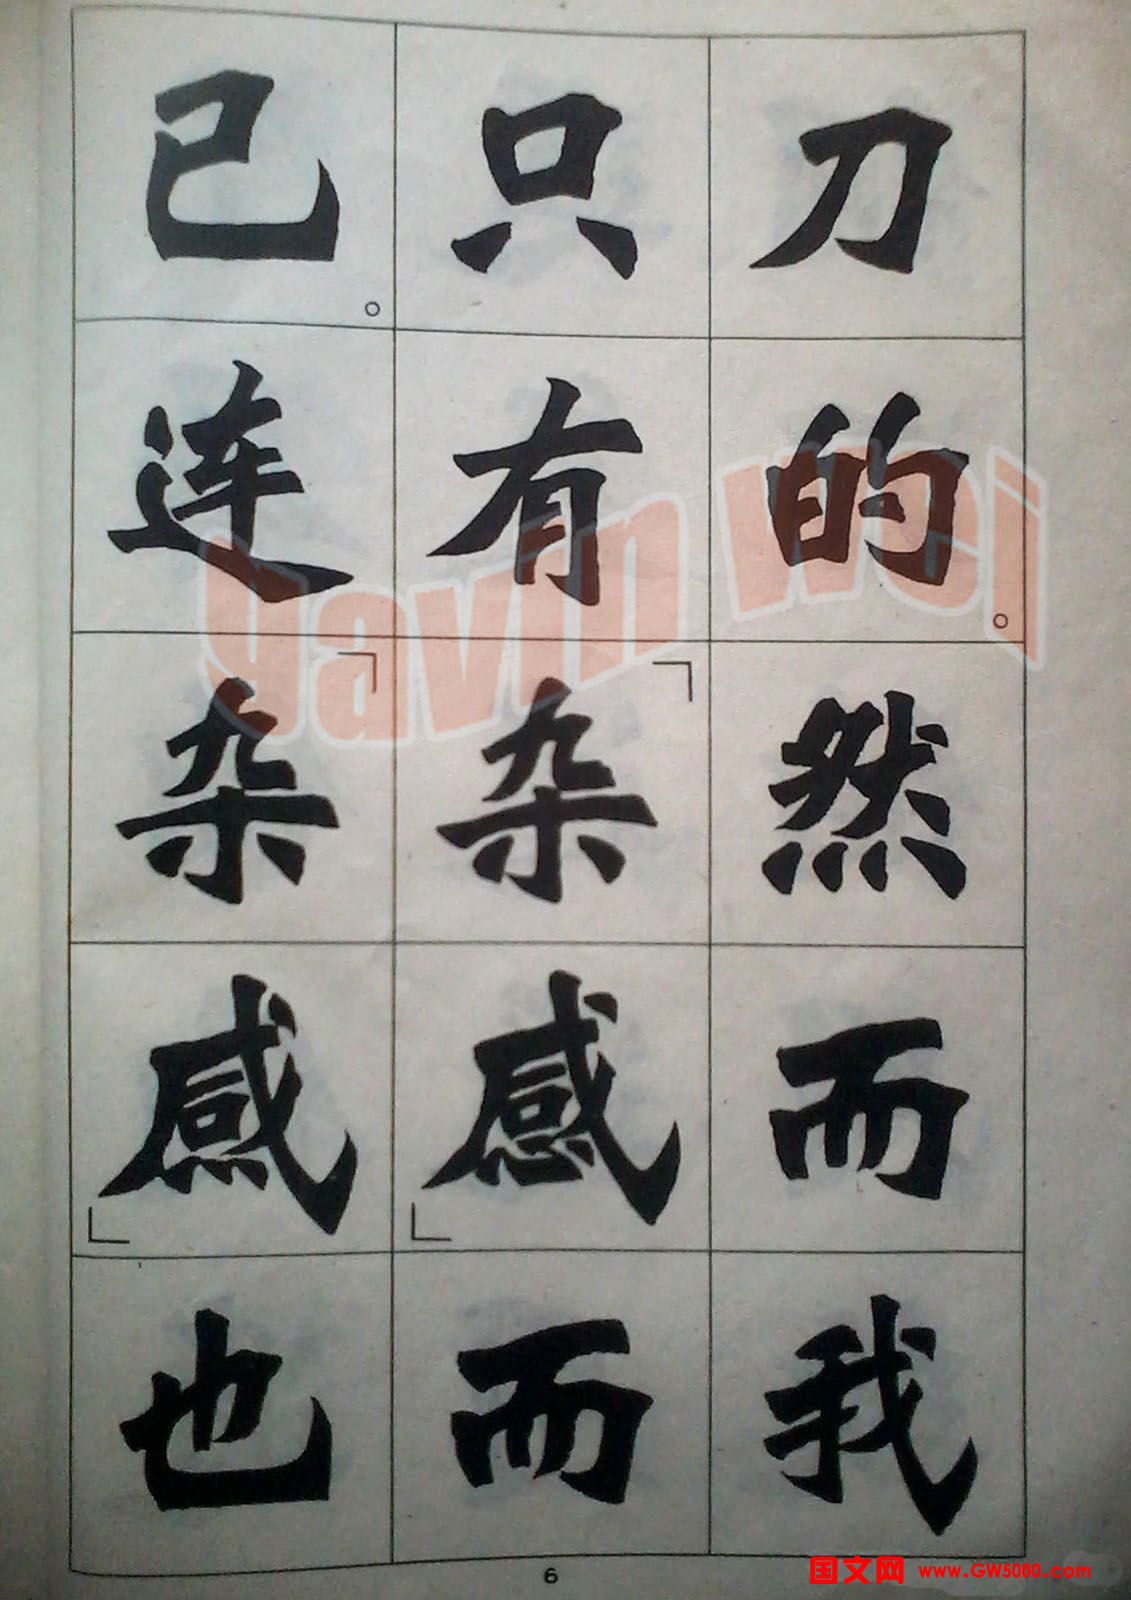 刀的。然而我
只有「杂感」而
已。连「杂感」也
gavin wei
6
国文网 www.GW5000.com